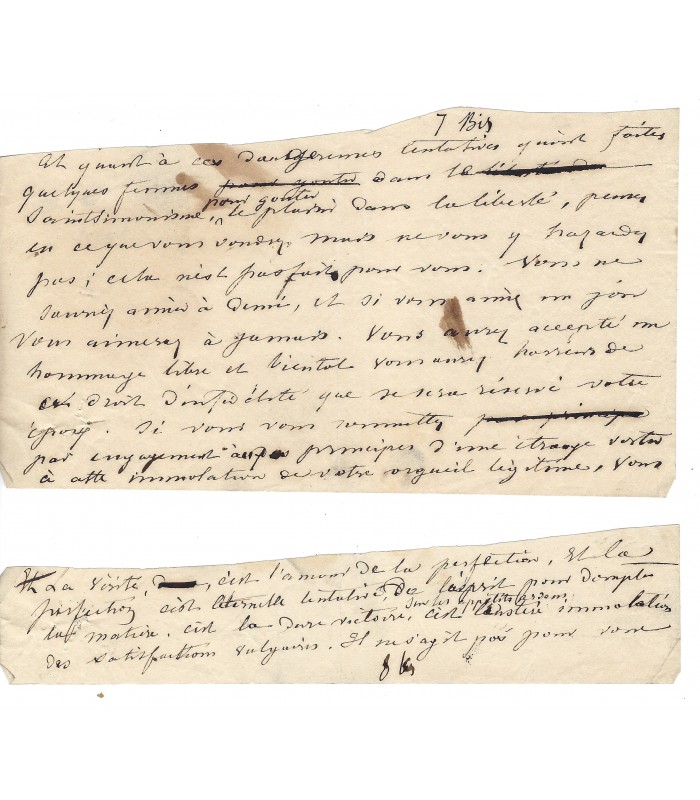 7 Bis
Et quant à ces dangereuses tentatives qu'ont faites
quelques femmes pour gouter dans le
Saintsimonisme, pour gouter le plaisir dans la liberté, pensez
en ce que vous voudrez, mais ne vous y hazardez
pas; cela n'est pas fait pour vous. Vous ne
sauriez aimer à demi, et si vous aimez un jour
vous aimerez à jamais. Vous aurez accepté un
hommage libre et bientot vous aurez horreur de
ce droit d'infidélité que se sera réservé votre
époux. Si vous vous soumettez par principe
par engagement aux principes d'une étrange vertu
à cette immolation de votre orgueil légitime, vous
Et La vérité, c'est l'amour de la perfection, et la
perfection c'est l'éternelle tentative de l'esprit pour dompter
la matière. c'est la dure victoire, sur les appétits c'est l'austère immolation
des satisfactions vulgaires. Il ne s'agit pas pour vous
8 bis